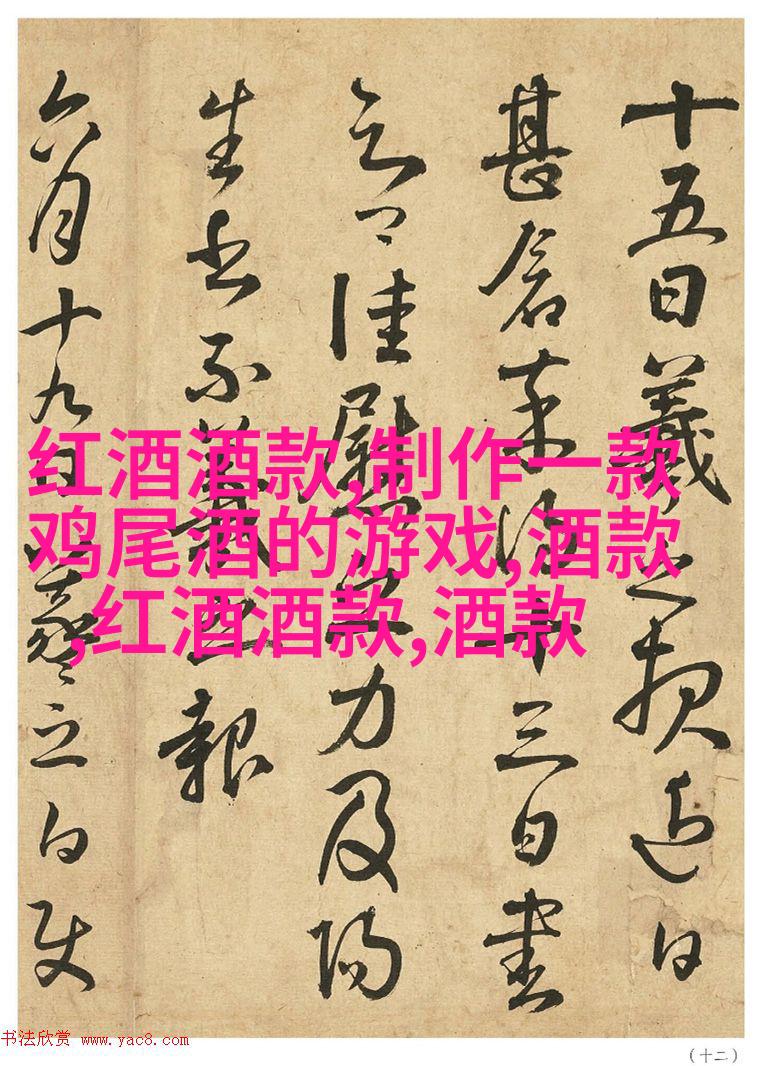 十五日羲之頓近日
甚十三日書
佳慰力及
生不報
六月十九日羲之白使
红酒酒款,制作一款
鸡尾酒的游戏,酒款
,红酒酒款,酒款
书法欣赏 www.yac8.com
（十二）